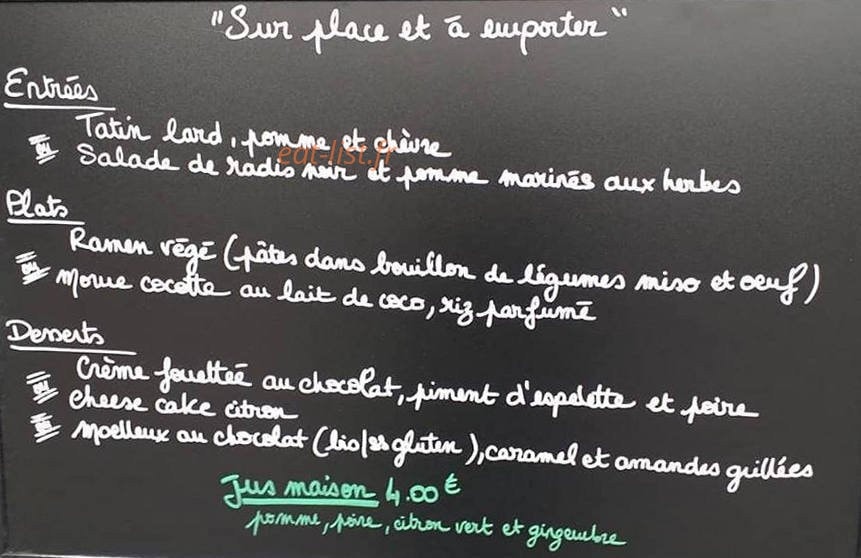 "Sur place et à emporter"
Entrées
Tatin lard, pomme et chèvre
ou Salade de radis noir et pomme marinés aux herbes
eat-list.fr
Plats
Ramen végé (pâtes dans bouillon de légumes miso et oeuf)
ou Morue cocotte au lait de coco, riz parfumé
Desserts
Crème fouetteé au chocolat, piment d'espelette et poire
ou cheese cake citron
ou Moelleux au chocolat (bio/ss gluten), caramel et amandes grillées
Jus maison 4.00 €
pomme, poire, citron vert et gingembre